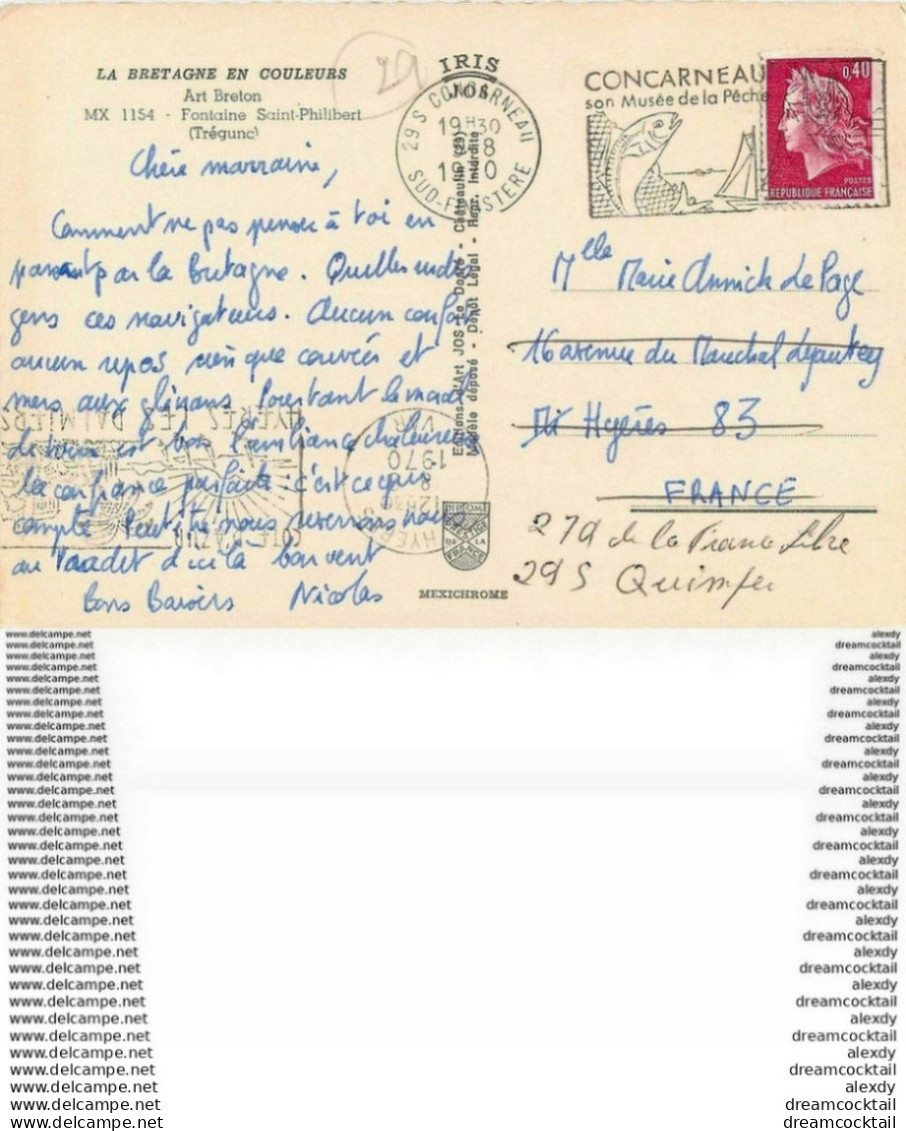 LA BRETAGNE EN COULEURS
Art Breton
MX 1154 - Fontaine Saint-Philibert
(Trégunc)
29
IRIS
JOS
29 S CONCARNEAU
19H30
-8
SUD-FINISTERE
CONCARNEAU
son Musée de la Pêche
0,40
POSTES
REPUBLIQUE FRANÇAISE
Chère marraine,
Comment ne pas penser à toi en
passant par la Bretagne. Quelles
ces navigateurs. Aucun confort
aucun repos rien que courses et
mers aux glénans Pourtant le
de tous est bon l'ambiance chaleureuse
la confiance parfaite c'est ce qui
compte Peut être nous reverrons nous
au d'ici là bon vent
Bons Baisers Nicolas
HYERES LES PALMIERS
COTE D'AZUR
HYERES
VAR
12H
8
1970
Editions d'Art JOS Le Doaré - Châteaulin (29)
Modèle déposé - Dépôt Légal - Repr. Interdite
PRESTIGE
DE LA
FRANCE
MEXICHROME
Melle Marie Annick Le Page
16 avenue du Marechal Lyautey
Hyères 83
FRANCE
de la France Libre
29S Quimper
www.delcampe.net
alexdy
dreamcocktail